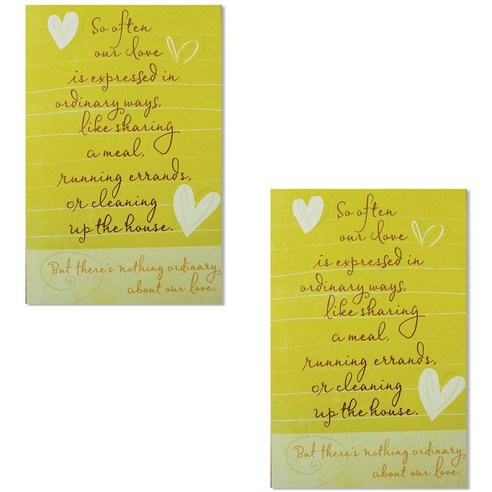 So often
our love
is expressed in
ordinary ways,
like sharing
a meal,
running errands,
or cleaning
up the house.
But there's nothing ordinary
about our love.
So often
our love
is expressed in
ordinary ways,
like sharing
a meal,
running errands,
or cleaning
up the house.
But there's nothing ordinary
about our love.